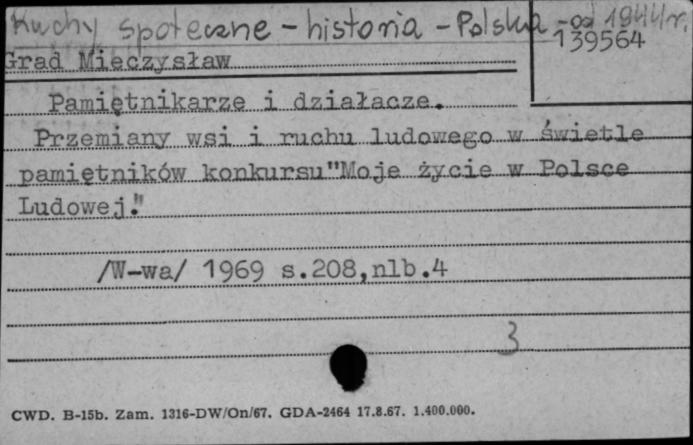 Ruchy społeczne - historia - Polska - od 1944 r.
139564
Grad Mieczysław
Pamiętnikarze i działacze.
Przemiany wsi i ruchu ludowego w świetle
pamiętników konkursu"Moje życie w Polsce
Ludowej."
/W-wa/ 1969 s.208,nlb.4
3
CWD. B-15b. Zam. 1316-DW/On/67. GDA-2464 17.8.67. 1.400.000.